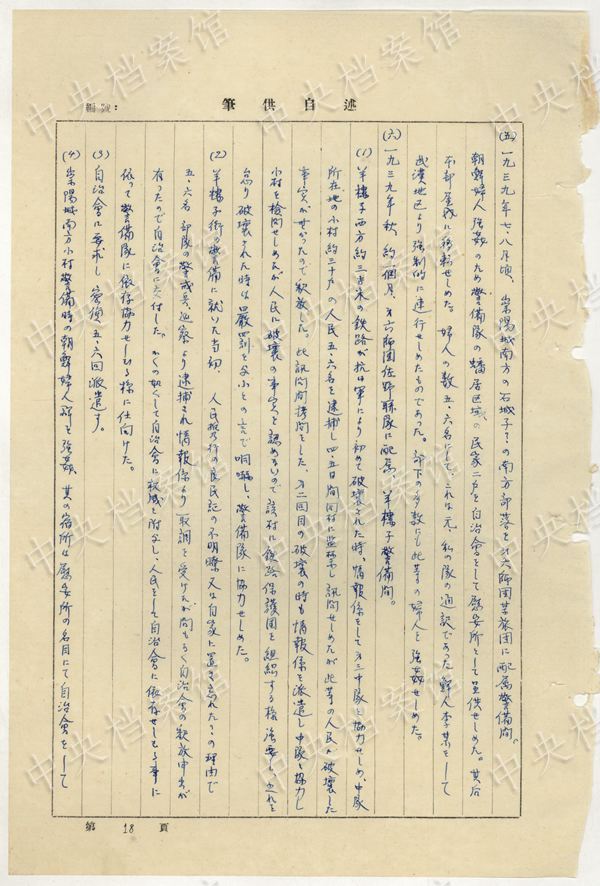 筆供自述
編號：
(五) 一九三九年七、八月頃、崇陽城南方の石城子？の南方部落を第六師団某旅団に配属警備間。
朝鮮婦人強姦のため警備隊の蟠居区域の民家二戸を自治会をして慰安所として呈供せしめた。其后
本部屋城に移転せしめた。婦人の数五、六名にして、これは元、私の隊の通訳であった鮮人李某をして
武漢地区より強制的に連行せしめたものであった。部下の多数にも此等の婦人を強姦せしめた。
(六) 一九三九年秋、約一個月、第六師団佐野聯隊に配属、羊樓子警備間。
(1) 羊樓子西方約三吉米の鉄路が抗日軍により初めて破壊された時、情報係をして第三中隊と協力せしめ、中隊
所在地の小村約三十戸の人民五、六名を逮捕し四、五日間同村に監禁し訊問せしめたが此等の人民が破壊した
事実がなかったので釈放した。此訊問間拷問をした。第二回目の破壊の時も情報係を派遣し中隊と協力し
小村を検問せしめたが人民に破壊の事実を認めないので該村に鉄路保護団を組織する様強要し、之れを
怠り破壊された時は厳罰を与ふとの言で恫嚇し、警備隊に協力せしめた。
(2) 羊樓子街の警備に就いた当初、人民携行の良民証の不明瞭又は自家に置き忘れた？の理由で
五、六名部隊の警戒兵、巡察より逮捕され情報係より取調を受けたが間もなく自治会の釈放申出が
有ったので自治会に交付した。かくの如くして自治会に权威を附与し、人民をして自治会に依存せしむる事に
依って警備隊に依存協力せしむる様に仕向けた。
(3) 自治会に要求し密偵五、六回派遣す。
(4) 崇陽城南方小村警備時の朝鮮婦人群を強姦、其の宿所は慰安所の名目にて自治会をして
第 18 頁
中央档案馆